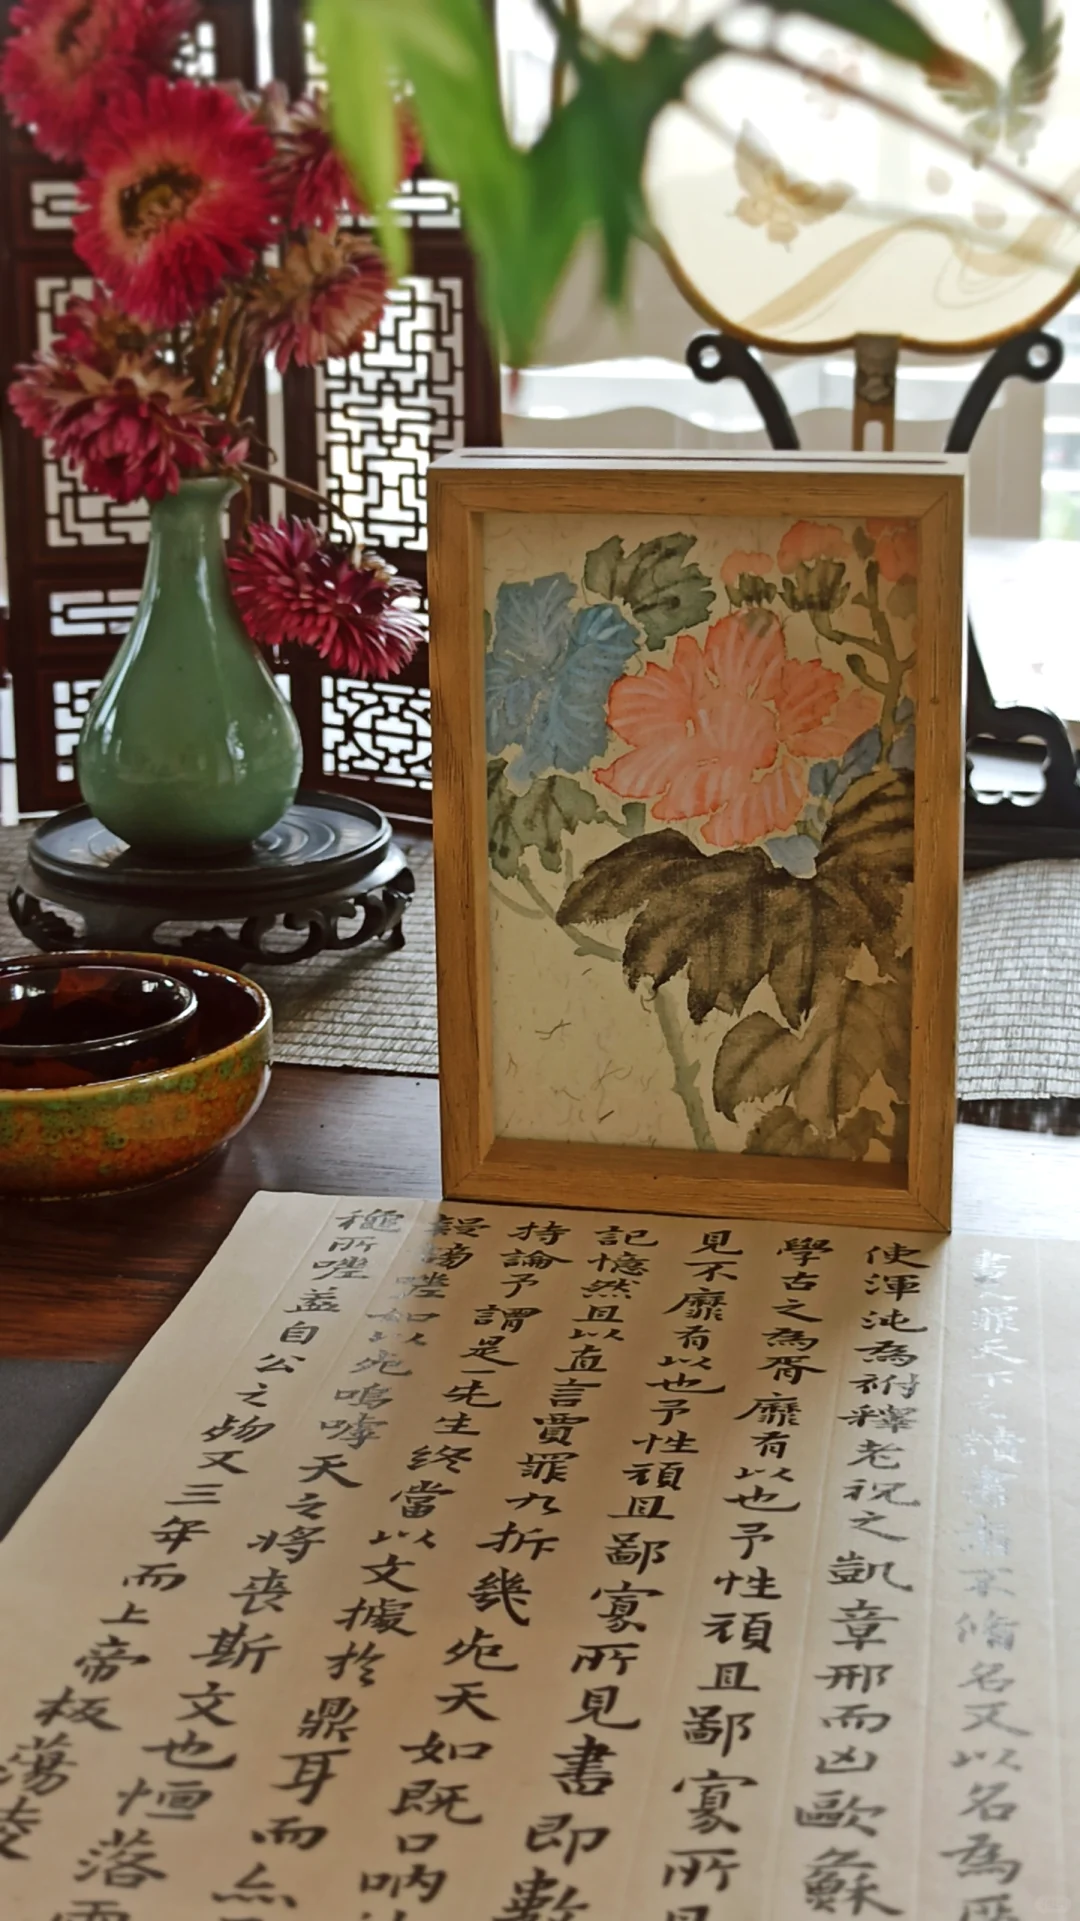 罪天下之讀書不脩名又以名為
使渾沌為祔釋老祝之凱章邢而凶歐蘇
學古之為胥靡有以也予性頑且鄙寡所見
見不靡有以也予性頑且鄙寡所見書即數
記憶然且以直言賈罪九折幾死天如既口吶
持論予謂是一先生終當以文據於鼎耳而亦
謾謫嘊如以死鳴嘑天之將喪斯文也恒落
所嘊葢自公之歾又三年而上帝板蕩